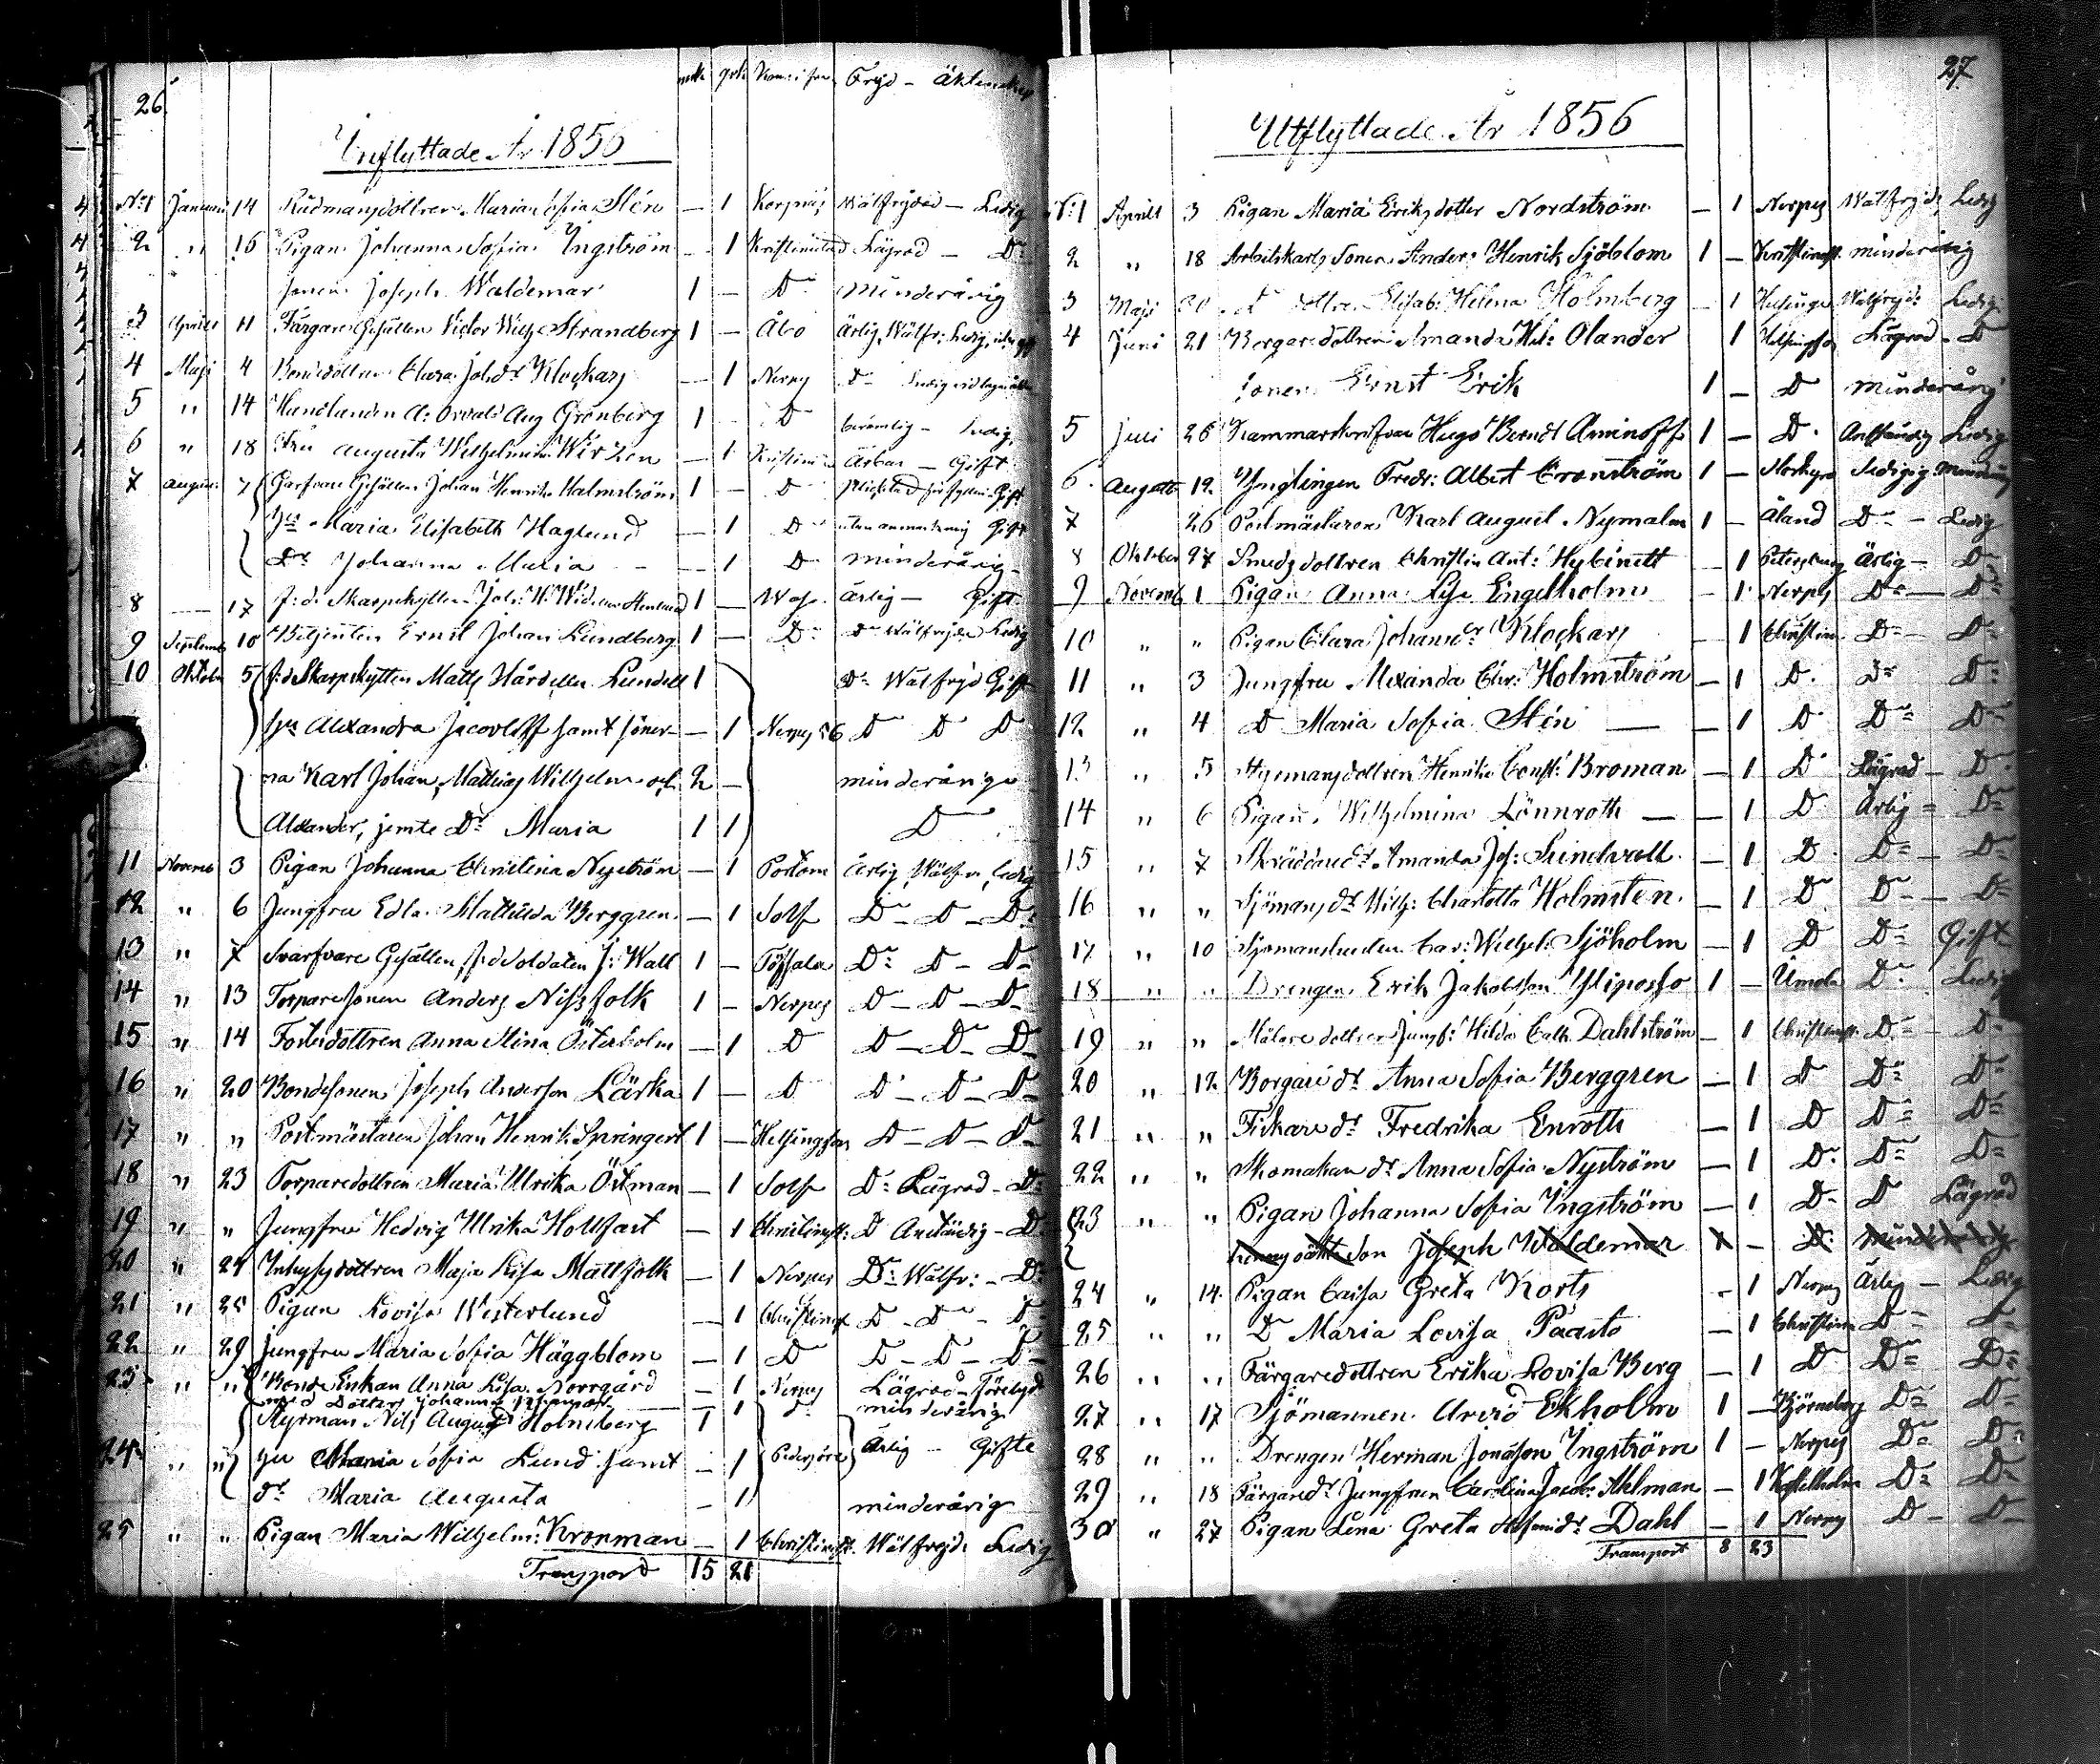 26.
mk qvk Kom: ifrån Fräjd – Äktenskap
Inflyttade År 1856
No 1 Januari 14 Rådmansdottren Maria Sofia Stén — 1 Korsnäs Wälfrejdad — Ledig
2 " 16 Pigan Johanna Sofia Yngström — 1 Kristinestad Lägrad — Do
sonen Joseph Waldemar 1 — Do Minderårig
3 Aprill 11 Färgare Gesällen Victor Wilh: Strandberg 1 — Åbo Ärlig, Wälfr: Ledig
4 Maji 4 Bondedottren Clara Joh:dr Klockars — 1 Nerpes Do Ledig
5 " 14 Handlanden A: Osvald Aug Grönberg 1 — Do berömlig — Ledig
6 " 18 Fru Augusta Wilhelmina Wirzen — 1 Kristine Ärbar — Gift
7 August 7 Garfvare Gesällen Johan Henrik Holmström 1 — Do Gift
Hu Maria Elisabeth Haglund — 1 Do utan anmärkning Gift
Dr Johanna Maria — 1 Do minderårig
8 — 17 f: d: Skarpskytten Joh: W: 1 — Wasa ärlig — Gift
9 Septemb 10 Betjenten Ernst Johan Lundberg 1 — Do Do Wälfrejdad Ledig
10 Oktobr 5 f: d: Skarpskytten Matts Lundell 1 Do Wälfrejd Gift
Hu Alexandra Jacovleff samt söner- — 1 Nerpes 56 Do Do Do
na Karl Johan, Mathias Wilhelm och 2 — minderåriga
Alexander, jemte Dr Maria 1 1 Do
11 Novemb 3 Pigan Johanna Christina Nyström — 1 Portom Ärlig, Wälfr, Ledig
12 " 6 Jungfru Edla Mathilda Berggren — 1 Solf Do — Do — Do
13 " 7 Svarfvare Gesällen, f: d soldaten J: Wall 1 — Töfsala Do Do — Do
14 " 13 Torparesonen Anders Nissfolk 1 — Nerpes Do — Do — Do
15 " 14 Fosterdottren Anna Stina Österholm — 1 Do Do — Do — Do
16 " 20 Bondesonen Joseph Andersson Lärka 1 — Do Do — Do — Do
17 " " Postmästaren Johan Henrik Springert 1 — Helsingfors Do — Do — Do
18 " 23 Torparedottren Maria Ulrika Östman — 1 Solf Do Lägrad — Do
19 " " Jungfru Hedvig Ulrika Hollfast — 1 Christinest: Do Anständig — Do
20 " 24 Inhysesdottren Maja Lisa Mattfolk — 1 Nerpes Do Wälfr: — Do
21 " 25 Pigan Lovisa Westerlund — 1 Christinest Do — Do — Do
22 " 29 Jungfru Maria Sofia Häggblom — 1 Do Do — Do — Do
23 " " Bonde Enkan Anna Lisa Norrgård — 1 Nerpes Lägrad
med Dotter Johanna — 1 Do minderårig
24 " " Styrman Nils August Holmberg 1
Hu Maria Sofia Lund samt — 1 Pedersöre Ärlig — Gifte
dr Maria Augusta — 1 minderårig
25 " " Pigan Maria Wilhelm: Kronman — 1 Christinest. Wälfrejd: Ledig
Transport 15 21
27
Utflyttade År 1856
No: 1 Aprill 3 Pigan Maria Eriksdotter Nordström — 1 Nerpes Wälfrejd: Ledig
2 " 18 Arbetskarls Sonen Anders Henrik Sjöblom 1 — Kristinest. minderårig
3 Maji 20 Do dottren Elisab: Helena Holmberg — 1 Wälfrejd: Ledig
4 Juni 21 Borgaredottren Amanda Hel: Olander 1 Helsingfors Lägrad — Do
sonen Ernst Erik 1 — Do minderårig
5 Juli 26 Hugo Berndt Aminoff 1 — Do Anständig Ledig
6 Augusti 12 Ynglingen Fredr: Albert Cronström 1 — Storkyro Ledig
7 26 Postmästaren Karl August Nymalm 1 — Åland Do — Ledig
8 Oktober 27 Smedsdottren Christin Ant: Hybinett — 1 Petersburg Ärlig — Do
9 Novemb 1 Pigan Anna Lisa Engelholm — 1 Nerpes Do — Do
10 " " Pigan Clara Johansdr Klockars — 1 Christine Do — Do
11 " 3 Jungfru Alexandra Chr: Holmström — 1 Do Do Do
12 " 4 Do Maria Sofia Stén — 1 Do Do Do
13 " 5 Styrmansdottren Henrika Const: Broman — 1 Do Lägrad — Do
14 " 6 Pigan Wilhelmina Lönnroth — 1 Do Ärlig — Do
15 " 7 Skräddaredr Amanda Jos: Lindwall — 1 Do Do — Do
16 " " Sjömansdr Wilh: Charlotta Holmsten — 1 Do Do — Do
17 " 10 Sjömanshustrun Car: Wilhel: Sjöholm — 1 Do Do Gift
18 " " Drengen Erik Jakobsson 1 — Umeå Do Ledig
19 " " Målaredottren Jungf: Hilda Cath: Dahlström — 1 Christinest. Do — Do
20 " 12 Borgare dr Anna Sofia Berggren — 1 Do Do Do
21 " " Fiskare dr Fredrika Enroth — 1 Do Do Do
22 " " Skomakare dr Anna Sofia Nyström — 1 Do Do Do
23 " " Pigan Johanna Sofia Yngström — 1 Do Do Lägrad
hennes oäkta son Joseph Waldemar 1 — Do Minderårig
24 " 14 Pigan Caisa Greta Korts — 1 Nerpes Ärlig — Ledig
25 " " Do Maria Lovisa Paasto — 1 Christine Do Do
26 " " Färgaredottren Erika Lovisa Berg — 1 Do Do Do
27 " 17 Sjömannen Arvid Ekholm 1 — Björneborg Do Do
28 " " Drengen Herman Jonasson Yngström 1 — Nerpes Do Do
29 " 18 Färgaredr Jungfrun Carolina Jacob: Ahlman — 1 Do Do
30 " 27 Pigan Lena Greta Dahl — 1 Nerpes Do — Do
Transport 8 23